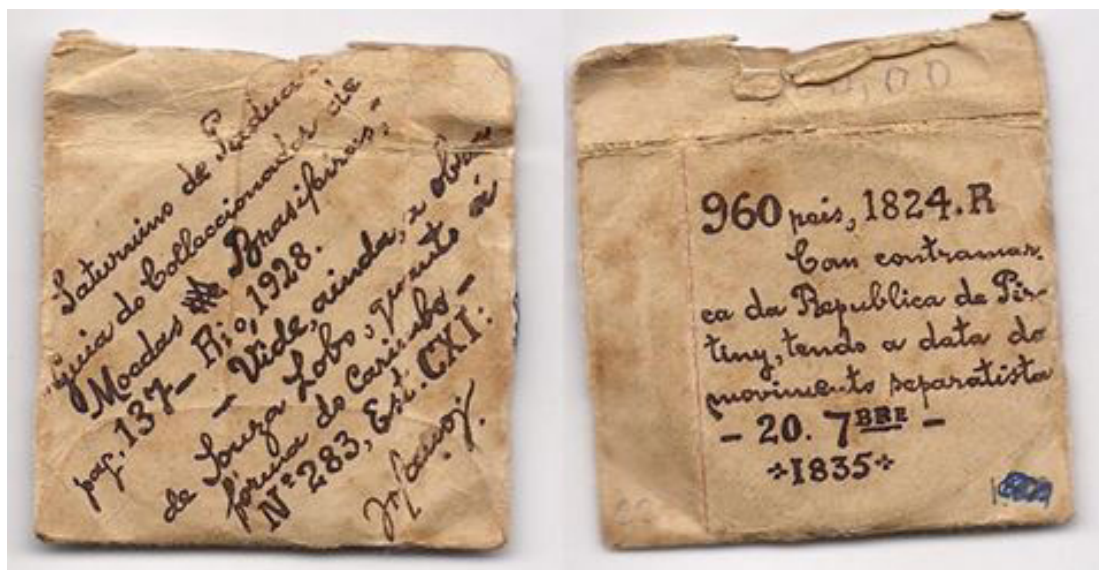 Saturnino de Padua
guia do Colleccionador de
Moedas Brasileiras,
pag, 137 – Rio, 1928.
– Vide, ainda, a obra
de Souza Lobo, quanto á
fórma do Carimbo –
Nº 283, Est. CXI.
00,00
960 reis, 1824.R
Com contramar-
ca da Republica de Pira-
tiny, tendo a data do
movimento separatista
– 20. 7BRE –
÷1835÷